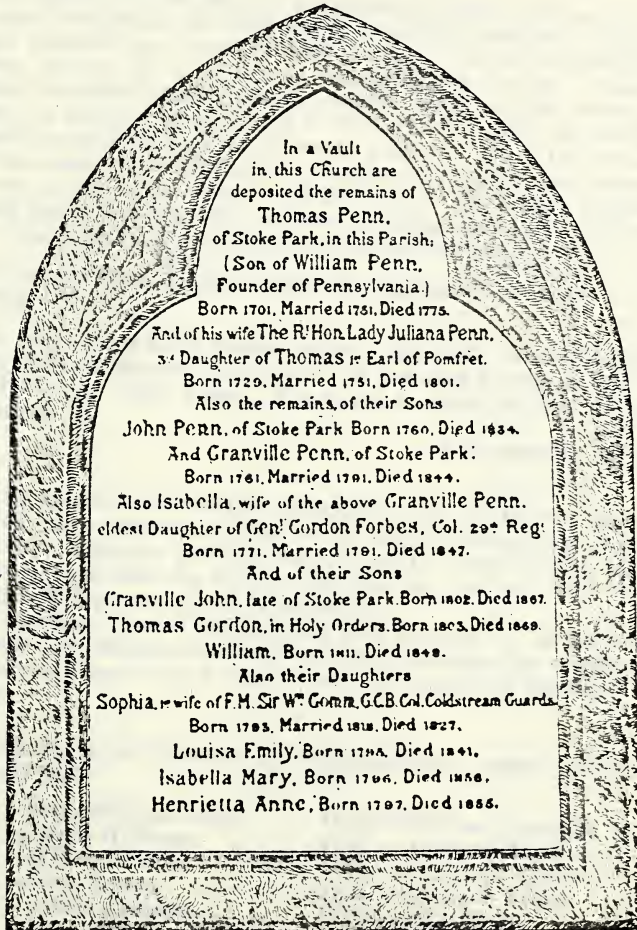 In a Vault
in this Church are
deposited the remains of
Thomas Penn,
of Stoke Park, in this Parish;
(Son of William Penn,
Founder of Pennsylvania.)
Born 1701, Married 1751, Died 1775.
And of his wife The Rt Hon. Lady Juliana Penn,
3d Daughter of Thomas 1st Earl of Pomfret.
Born 1729, Married 1751, Died 1801.
Also the remains, of their Sons
John Penn, of Stoke Park Born 1760, Died 1834.
And Granville Penn, of Stoke Park:
Born 1761, Married 1791, Died 1844.
Also Isabella, wife of the above Granville Penn.
eldest Daughter of Genl Gordon Forbes, Col. 29th Regt
Born 1771, Married 1791, Died 1847.
And of their Sons
Granville John, late of Stoke Park. Born 1802. Died 1867.
Thomas Gordon, in Holy Orders. Born 1803, Died 1869.
William, Born 1811, Died 1848.
Also their Daughters
Sophia, 1st wife of F.M. Sir Wm Gomm, G.C.B. Col. Coldstream Guards
Born 1793, Married 1818, Died 1827.
Louisa Emily, Born 1795, Died 1841.
Isabella Mary, Born 1796, Died 1856.
Henrietta Anne, Born 1797, Died 1855.